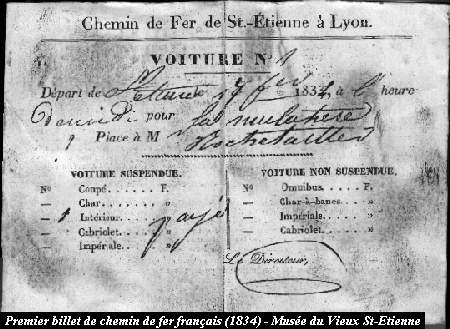 Chemin de Fer de St.-Étienne à Lyon.
VOITURE N° 1
Départ de St Étienne le fév 1834, à l' heure
pour la mulatière
9 Place à M Rochetaillée
VOITURE SUSPENDUE.
N° Coupé...... F.
— Char........ »
— 1 Intérieur..... » payé
— Cabriolet..... »
— Impériale.... »
VOITURE NON SUSPENDUE.
N° Omnibus..... F.
— Char-à-bancs... »
— Impériale..... »
— Cabriolet..... »
Le Directeur,
Premier billet de chemin de fer français (1834) - Musée du Vieux St-Etienne